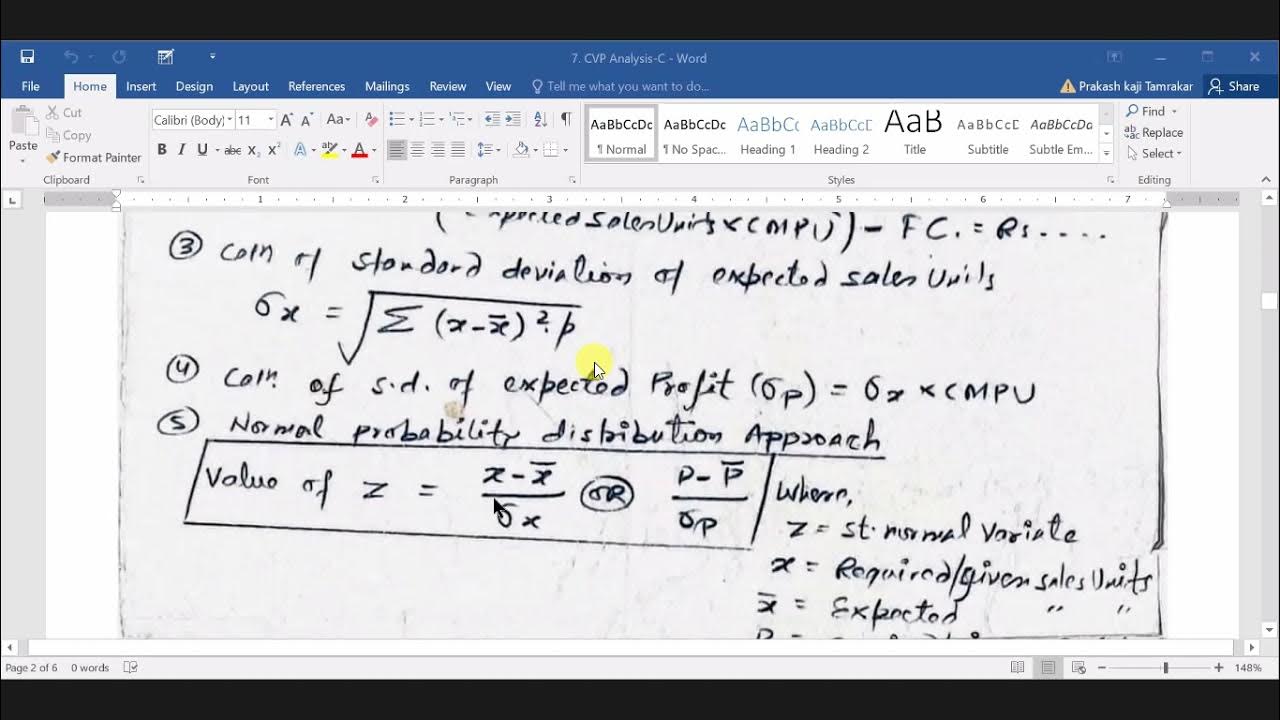 7. CVP Analysis-C - Word
File Home Insert Design Layout References Mailings Review View Tell me what you want to do... Prakash kaji Tamrakar Share
Cut
Copy
Format Painter
Paste
Calibri (Body) 11
B I U abc X₂ X²
AaBbCcDc AaBbCcDc AaBbCc AaBbCcC AaB AaBbCcD AaBbCcDa
¶ Normal ¶ No Spac... Heading 1 Heading 2 Title Subtitle Subtle Em...
Find
Replace
Select
Clipboard Font Paragraph Styles Editing
1 2 3 4 5 6 7
Sales Units × CMPU) - FC. = Rs.....
③ Caln of standard deviation of expected sales Units
σx = √Σ (x-x̄)².p
④ Caln. of s.d. of expected Profit (σp) = σx × CMPU
⑤ Normal probability distribution Approach
Value of Z = x-x̄/σx OR P-P̄/σp
Where,
Z = st. normal variate
x = Required/given sales Units
x̄ = Expected " "
Page 2 of 6 0 words 148%